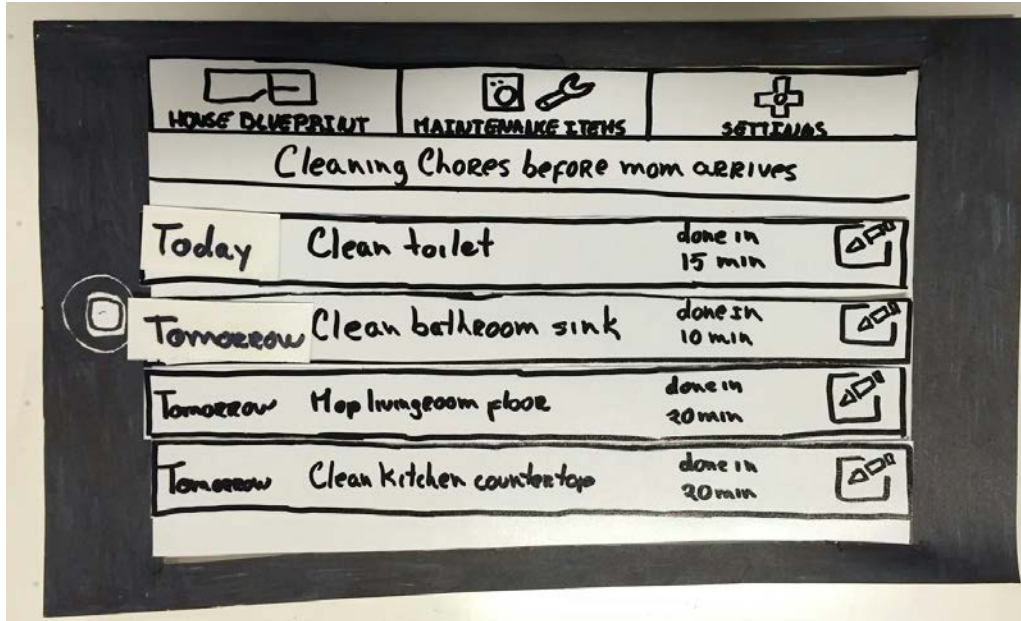 HOUSE BLUEPRINT
MAINTENANCE ITEMS
SETTINGS
Cleaning Chores before mom arrives
Today Clean toilet done in 15 min
Tomorrow Clean bathroom sink done in 10 min
Tomorrow Mop livingroom floor done in 20 min
Tomorrow Clean Kitchen countertops done in 20 min